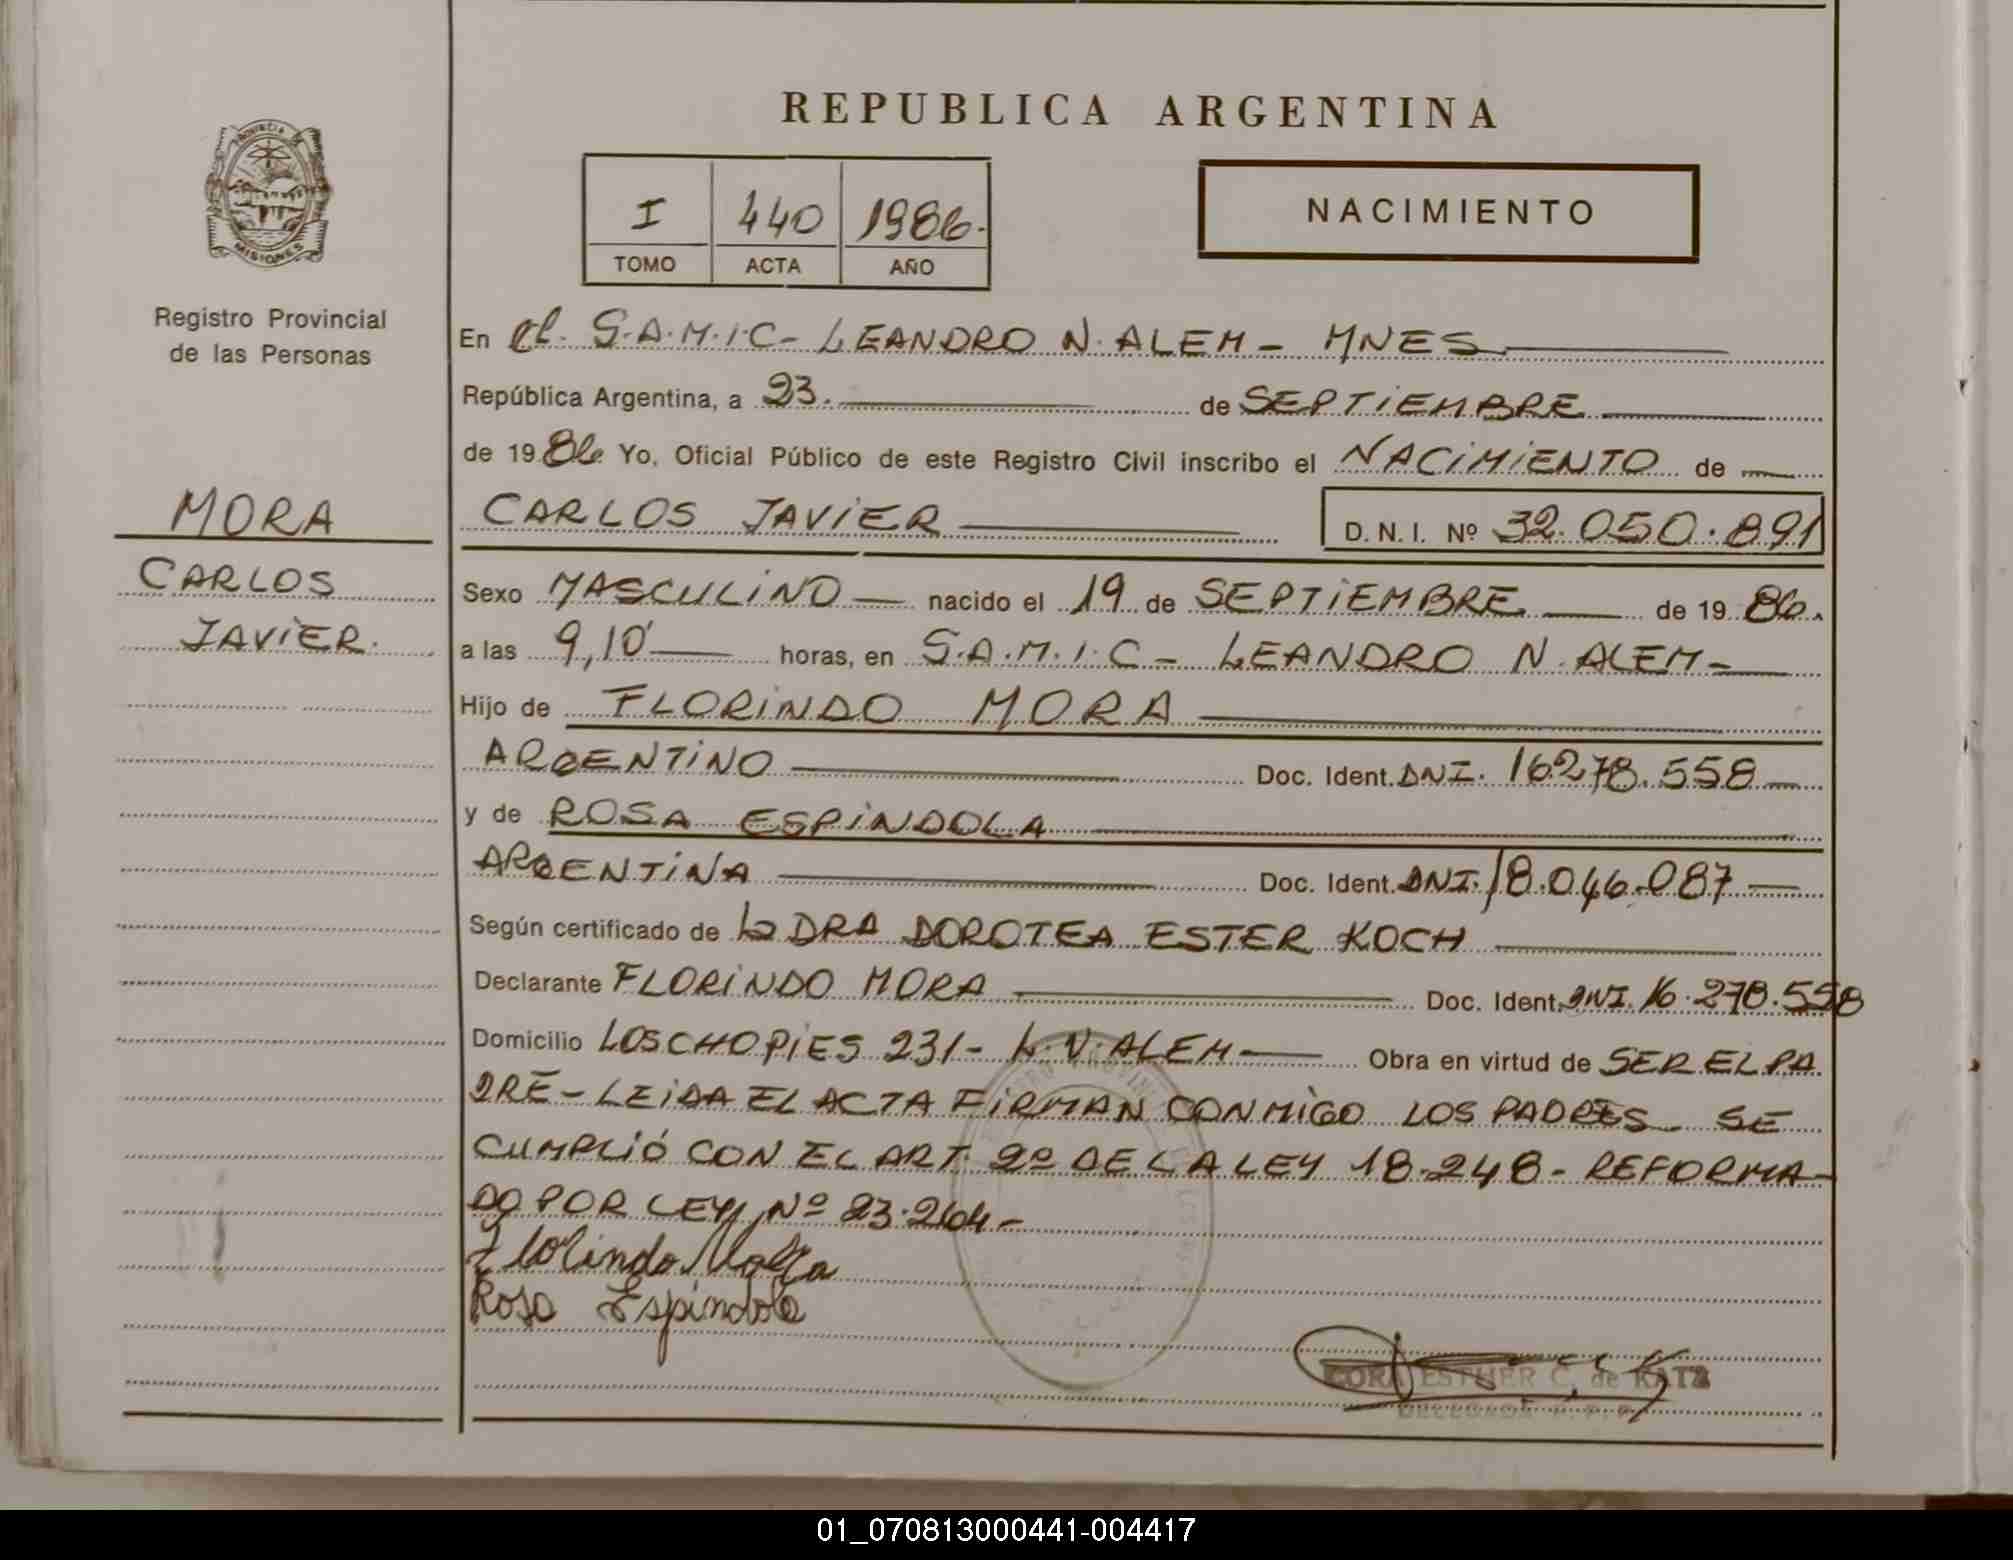 REPUBLICA ARGENTINA
PROVINCIA
MISIONES
Registro Provincial
de las Personas
I 440 1986.
TOMO ACTA AÑO
NACIMIENTO
En el S.A.M.I.C- LEANDRO N. ALEM - MNES
República Argentina, a 23. de SEPTIEMBRE
de 1986 Yo, Oficial Público de este Registro Civil inscribo el NACIMIENTO de
CARLOS JAVIER D. N. I. Nº 32.050.891
MORA
CARLOS
JAVIER.
Sexo MASCULINO nacido el 19 de SEPTIEMBRE de 1986.
a las 9,10 horas, en S.A.M.I.C - LEANDRO N. ALEM -
Hijo de FLORINDO MORA
ARGENTINO Doc. Ident. DNI. 16278.558
y de ROSA ESPINDOLA
ARGENTINA Doc. Ident. DNI. 18.046.087
Según certificado de La DRA DOROTEA ESTER KOCH
Declarante FLORINDO MORA Doc. Ident. DNI. 16.278.558
Domicilio LOSCHOPIES 231- L.N. ALEM Obra en virtud de SER EL PA
DRE - LEIDA EL ACTA FIRMAN CONMIGO LOS PADRES. SE
CUMPLIÓ CON EL ART. 2º DE LA LEY 18.248 - REFORMA-
DO POR LEY Nº 23.264-
Florindo Mora
Rosa Espindola
CORA ESTHER C. de KATZ
DELEGADA R. P. P.
01_070813000441-004417